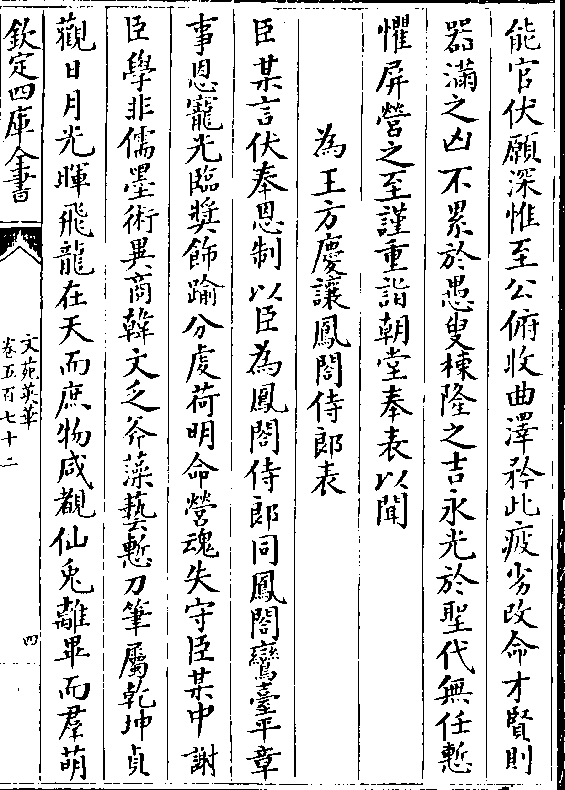 能官伏願深惟至公俯收曲澤矜此疲劣改命才賢則
器滿之凶不累於愚叟棟隆之吉永光於聖代無任慙
懼屏營之至謹重詣朝堂奉表以聞
為王方慶讓鳳閣侍郎表
臣某言伏奉恩制以臣為鳳閣侍郎同鳳閣鸞臺平章
事恩寵光臨奬飾踰分虔荷明命營魂失守臣某中謝
臣學非儒墨術異商韓文乏斧藻藝慙刀筆屬乾坤貞
觀日月光暉飛龍在天而庶物咸覩仙兎離畢而羣萌
欽定四庫全書
文苑英華
卷五百七十二
四